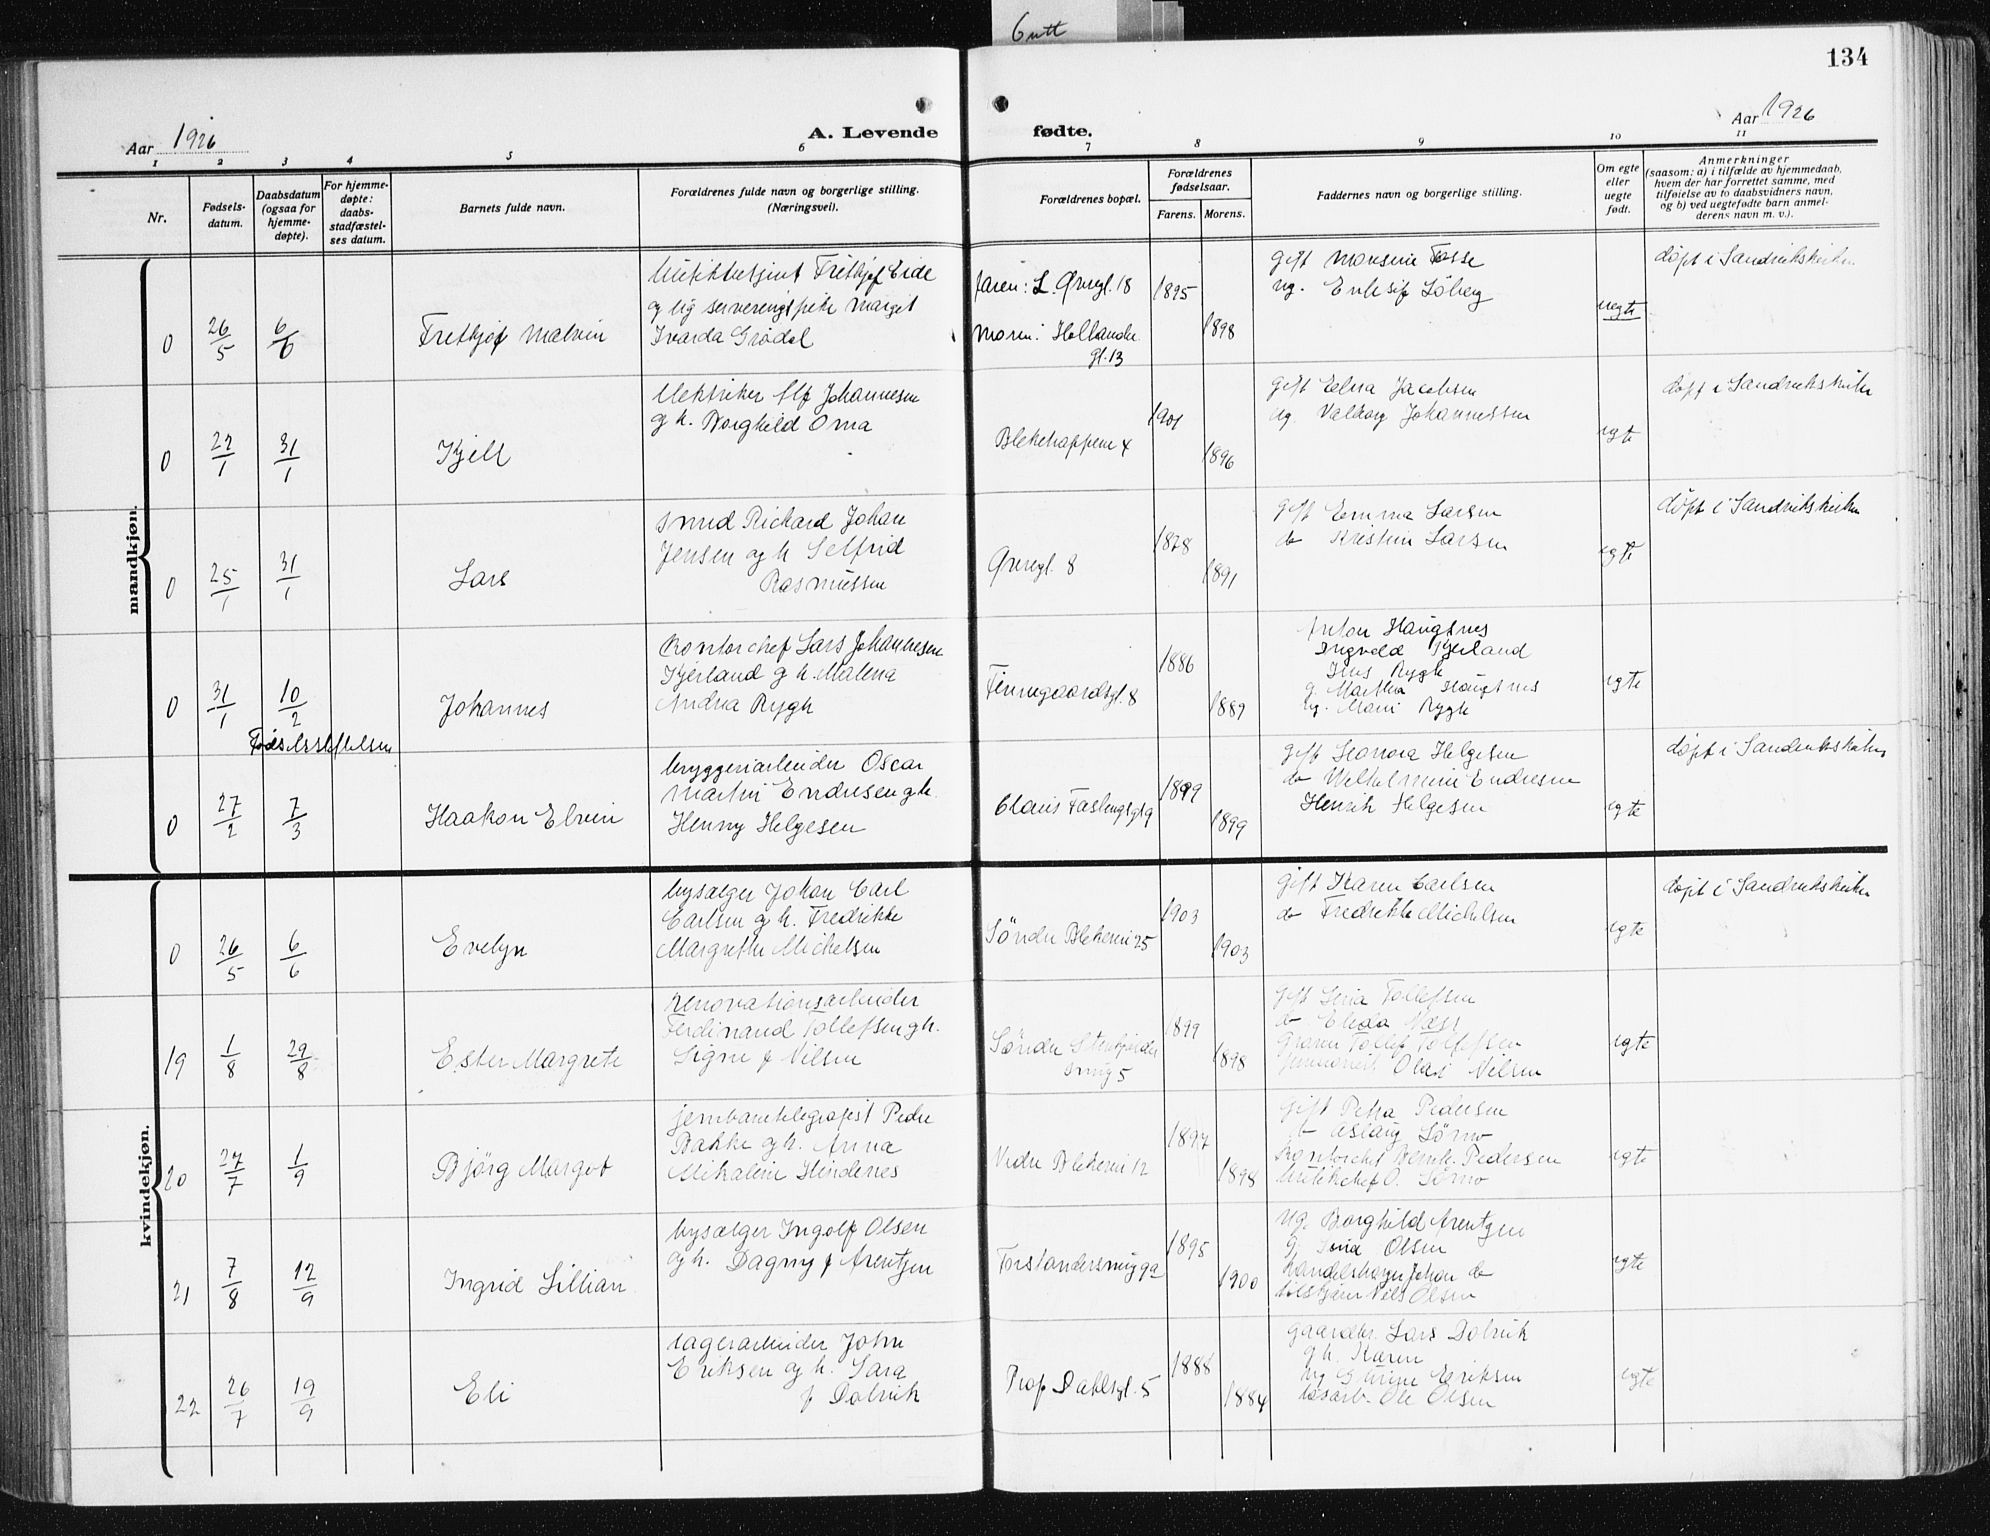 6 utt
134
Aar 1926
A. Levende fødte.
Aar 1926
1 2 3 4 5 6 7 8 9 10 11
Nr.
Fødsels-
datum.
Daabsdatum
(ogsaa for
hjemme-
døpte).
For hjemme-
døpte:
daabs-
stadfæstel-
ses datum.
Barnets fulde navn.
Forældrenes fulde navn og borgerlige stilling.
(Næringsvei).
Forældrenes bopæl.
Forældrenes
fødselsaar.
Farens. Morens.
Faddernes navn og borgerlige stilling.
Om egte
eller
uegte
født.
Anmerkninger
(saasom: a) i tilfælde av hjemmedaab,
hvem der har forrettet samme, med
tilføielse av to daabsvidners navn,
og b) ved uegtefødte barn anmel-
derens navn m. v.).
mandkjøn.
0 26/5 6/6 Fretkjof Malvin
Fretkjof Eide
og ug serveringspike Marget
Ivarda Grødal
faren: L. Øvregt. 18
Moren: Hollander
gt. 13
1895 1898
gift Monsine Fosse
ug. Søberg
uegte
døpt i Sandvikskirken
0 22/1 31/1 Kjell
Elektriker Alf Johannesen
og h. Borghild Oma
Blekehappene 4
1901 1896
gift Edna Jacobsen
ug. Valborg Johannessen
egte
døpt i Sandvikskirken
0 25/1 31/1 Lars
smed Richard Johan
Jensen og h. Selfrid
Rasmussen
Øvregt. 8
1878 1891
gift Emma Larsen
do Kristine Larsen
egte
døpt i Sandvikskirken
0 31/1 10/2 Johannes
Kontorchef Lars Johannesen
Kjerland g h. Malena
Andrea Rygh
Finnegaardsgt. 8
1886 1889
Anton Haugsnes
Ingvald Kjerland
Jens Rygh
g. Martha Haugsnes
ug. Marie Rygh
egte
Fødselsstiftelsen
0 27/2 7/3 Haakon Elvin
bryggeriarbeider Oscar
Martin Endresen g h.
Henny Helgesen
Claus Fastingsgt 9
1899 1899
gift Leonora Helgesen
do Wilhelmine Endresen
Henrik Helgesen
egte
døpt i Sandvikskirken
kvindekjøn.
0 26/5 6/6 Evelyn
bysælger Johan Carl
Carlsen og h. Fredrikke
Margrethe Michelsen
Søndre Blekevei 25
1903 1903
gift Karen Carlsen
do Fredrikke Michelsen
egte
døpt i Sandvikskirken
19 1/8 29/8 Ester Margrete
renovationsarbeider
Ferdinand Tollefsen g h.
Signe f Nilsen
Søndre Stenkjelder
smug 5
1899 1898
gift Lina Tollefsen
do Elida Næss
Tollef Tollefsen
Olai Nilsen
egte
20 27/7 1/9 Bjørg Margot
jernbanetelegrafist Peder
Bakke og h. Anna
Mikaline Hindenes
Nedre Blekevei 12
1897 1898
gift Petra Pedersen
do Aslaug Sørno
Kontorchef Henrik Pedersen
O. Sørno
egte
21 7/8 12/9 Ingrid Lillian
bysælger Ingolf Olsen
og h. Dagny f Arentzen
Forstandersmug 9a
1895 1900
ug. Borghild Arentzen
g. Olsen
Johan do
Nils Olsen
egte
22 26/7 19/9 Eli
lagerarbeider John
Eriksen og h. Sara
f Dolvik
Prof. Dahlsgt. 5
1888 1884
gaardbr. Lars Dolvik
g h. Karen
ug Eriksen
løsarb. Ole Olsen
egte